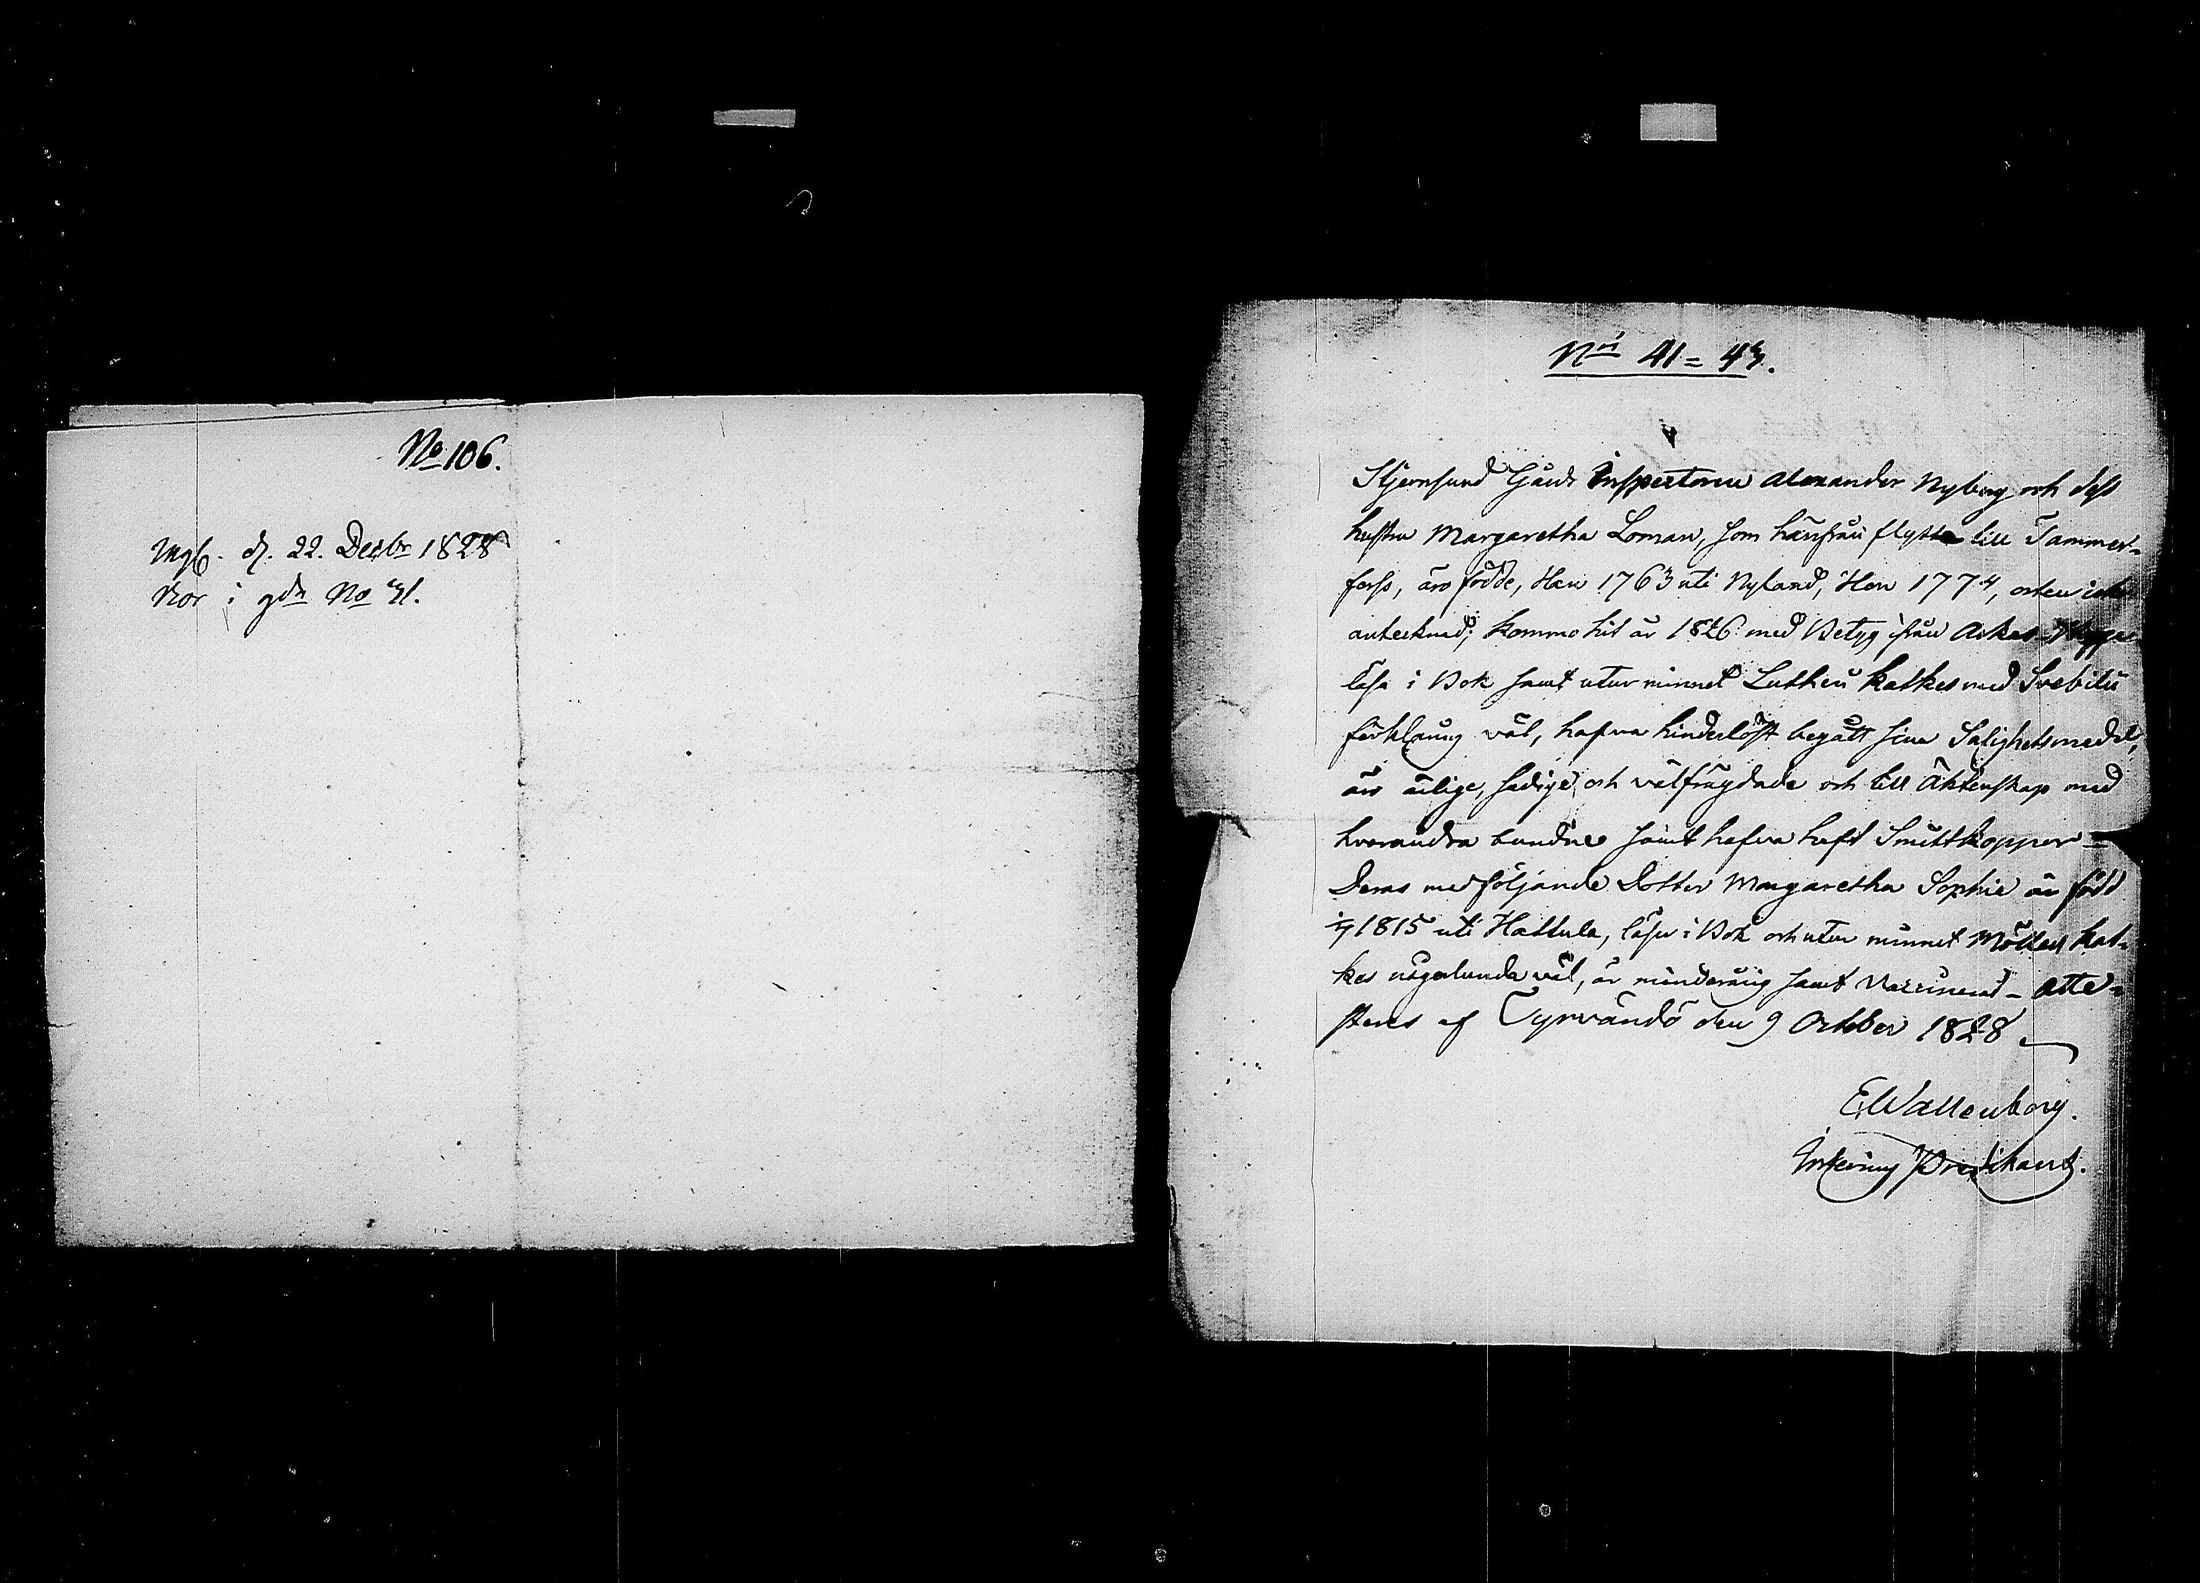 No 106.
Upb. d. 22. Decbr 1828
Bor i gdn No 41.
Nri 41 = 43.
Stjernsund Gårds Inspectoren Alexander Nyberg och dess
hustru Margaretha Loman, som härifrån flytta till Tammer-
forss, äro födde, Han 1763 uti Nyland, Hon 1774, orten icke
antecknad; kommo hit år 1826 med Betyg ifrån Askas
läsa i Bok samt utur minnet Lutheri Katkes med Svebilii
förklaring väl, hafva hinderlöst begått sina Salighetsmedel,
äro ärlige, sedige och välfrägdade och till Äktenskap med
hvarandra bundne samt hafva haft Smittkoppor -
Deras medföljande Dotter Margaretha Sophie är född
1815 uti Hattula, läser i Bok och utur minnet Möllers Kat-
kes någorlunda väl, är minderårig samt Vaccinerad - Atte-
steras af Tyrvändö den 9 October 1828
E Wallenborg.
Interims Predikant.